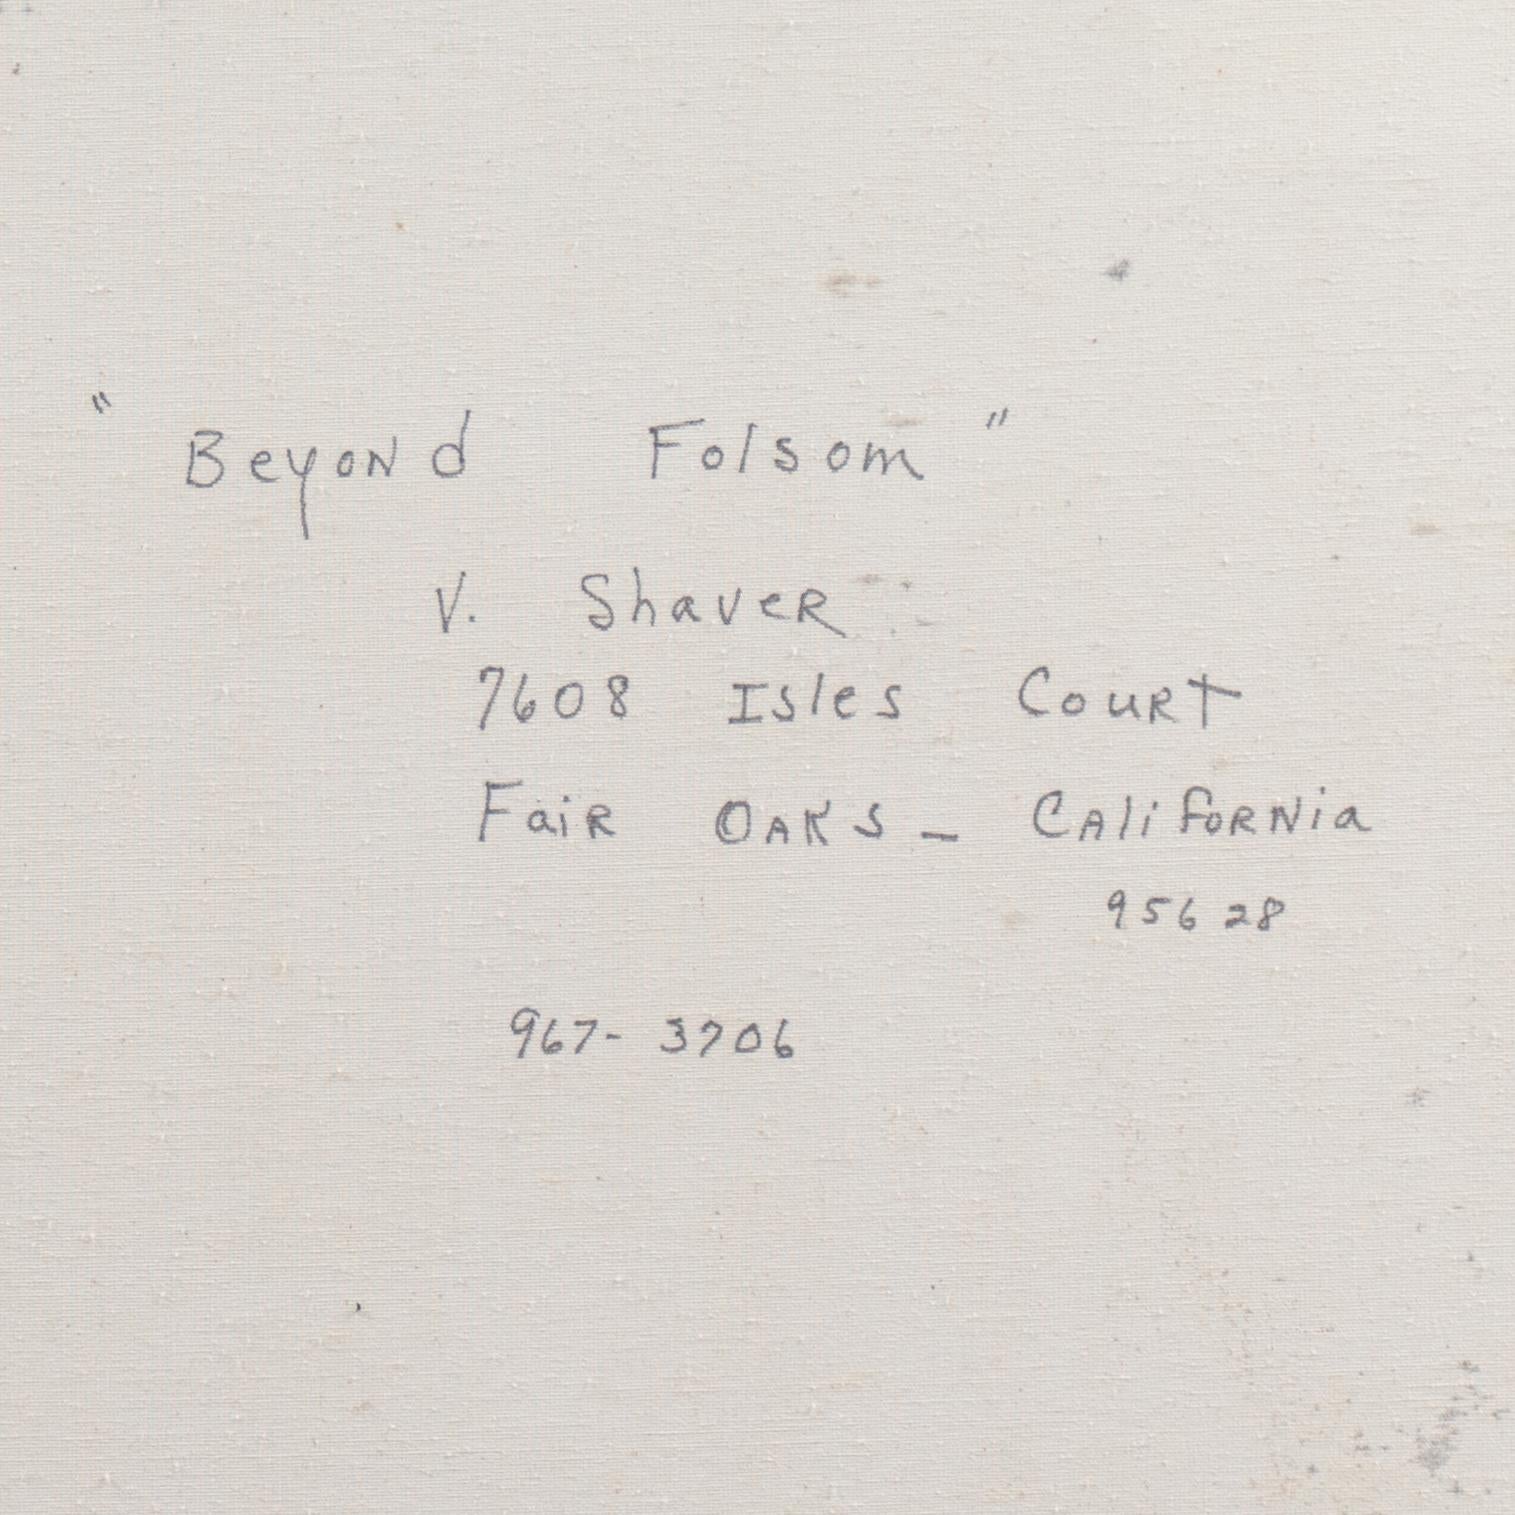 "Beyond Folsom"
V. Shaver
7608 Isles Court
Fair Oaks - California
95628
967-3706